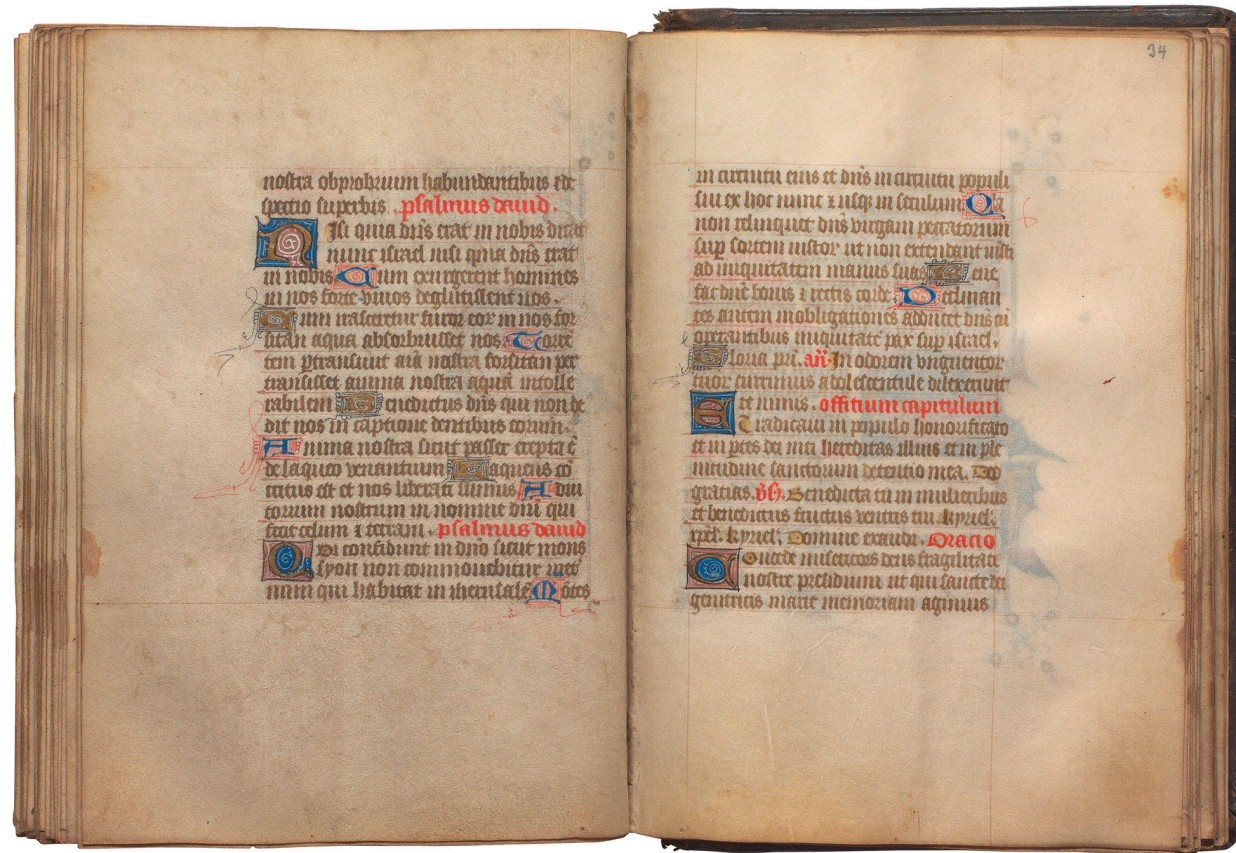 nostra obprobrium habundantibus et de
spectio superbis. psalmus dauid.
Nisi quia dñs erat in nobis dicat
nunc israel nisi quia dñs erat
in nobis Cum exurgerent homines
in nos forte viuos deglutissent nos.
Cum irasceretur furor eor in nos for
sitan aqua absorbuisset nos. Torrē
tem ptransiuit aīa nostra forsitan per
transisset anima nostra aquā intolle
rabilem Benedictus dñs qui non de
dit nos in captione dentibus eorum.
Anima nostra sicut passer erepta ē
de laqueo venantium Laqueus cō
tritus est et nos liberati sumus Adiu
torium nostrum in nomine dni qui
fecit celum ⁊ terram. psalmus dauid
Qui confidunt in dño sicut mons
syon non commouebitur in et
num qui habitat in iherusalē Mōtes
34
in circuitu eius et dñs in circuitu populi
sui ex hoc nunc ⁊ usqꝫ in seculum Qa
non relinquet dñs virgam peccatorum
sup sortem iustor ut non extendant iusti
ad iniquitatem manus suas Bene
fac dñe bonis ⁊ rectis corde. Declinan
tes autem in obligationes adducet dñs cū
operantibus iniquitatē pax sup israel.
Gloria pri. añ. In odorem unguentor
tuor currimus adolescentule dilexerunt
te nimis. offitium capitulum
Et radicaui in populo honorificato
et in ptes dei mei hereditas illius et in ple
nitudine sanctorum detentio mea. Deo
gratias. v̄s. Benedicta tu in mulieribus
et benedictus fructus ventris tui. kyriel.
xpel. kyriel. Domine exaudi. Oratio
Concede misericors deus fragilitati
nostre presidium ut qui sancte dei
genitricis marie memoriam agimus